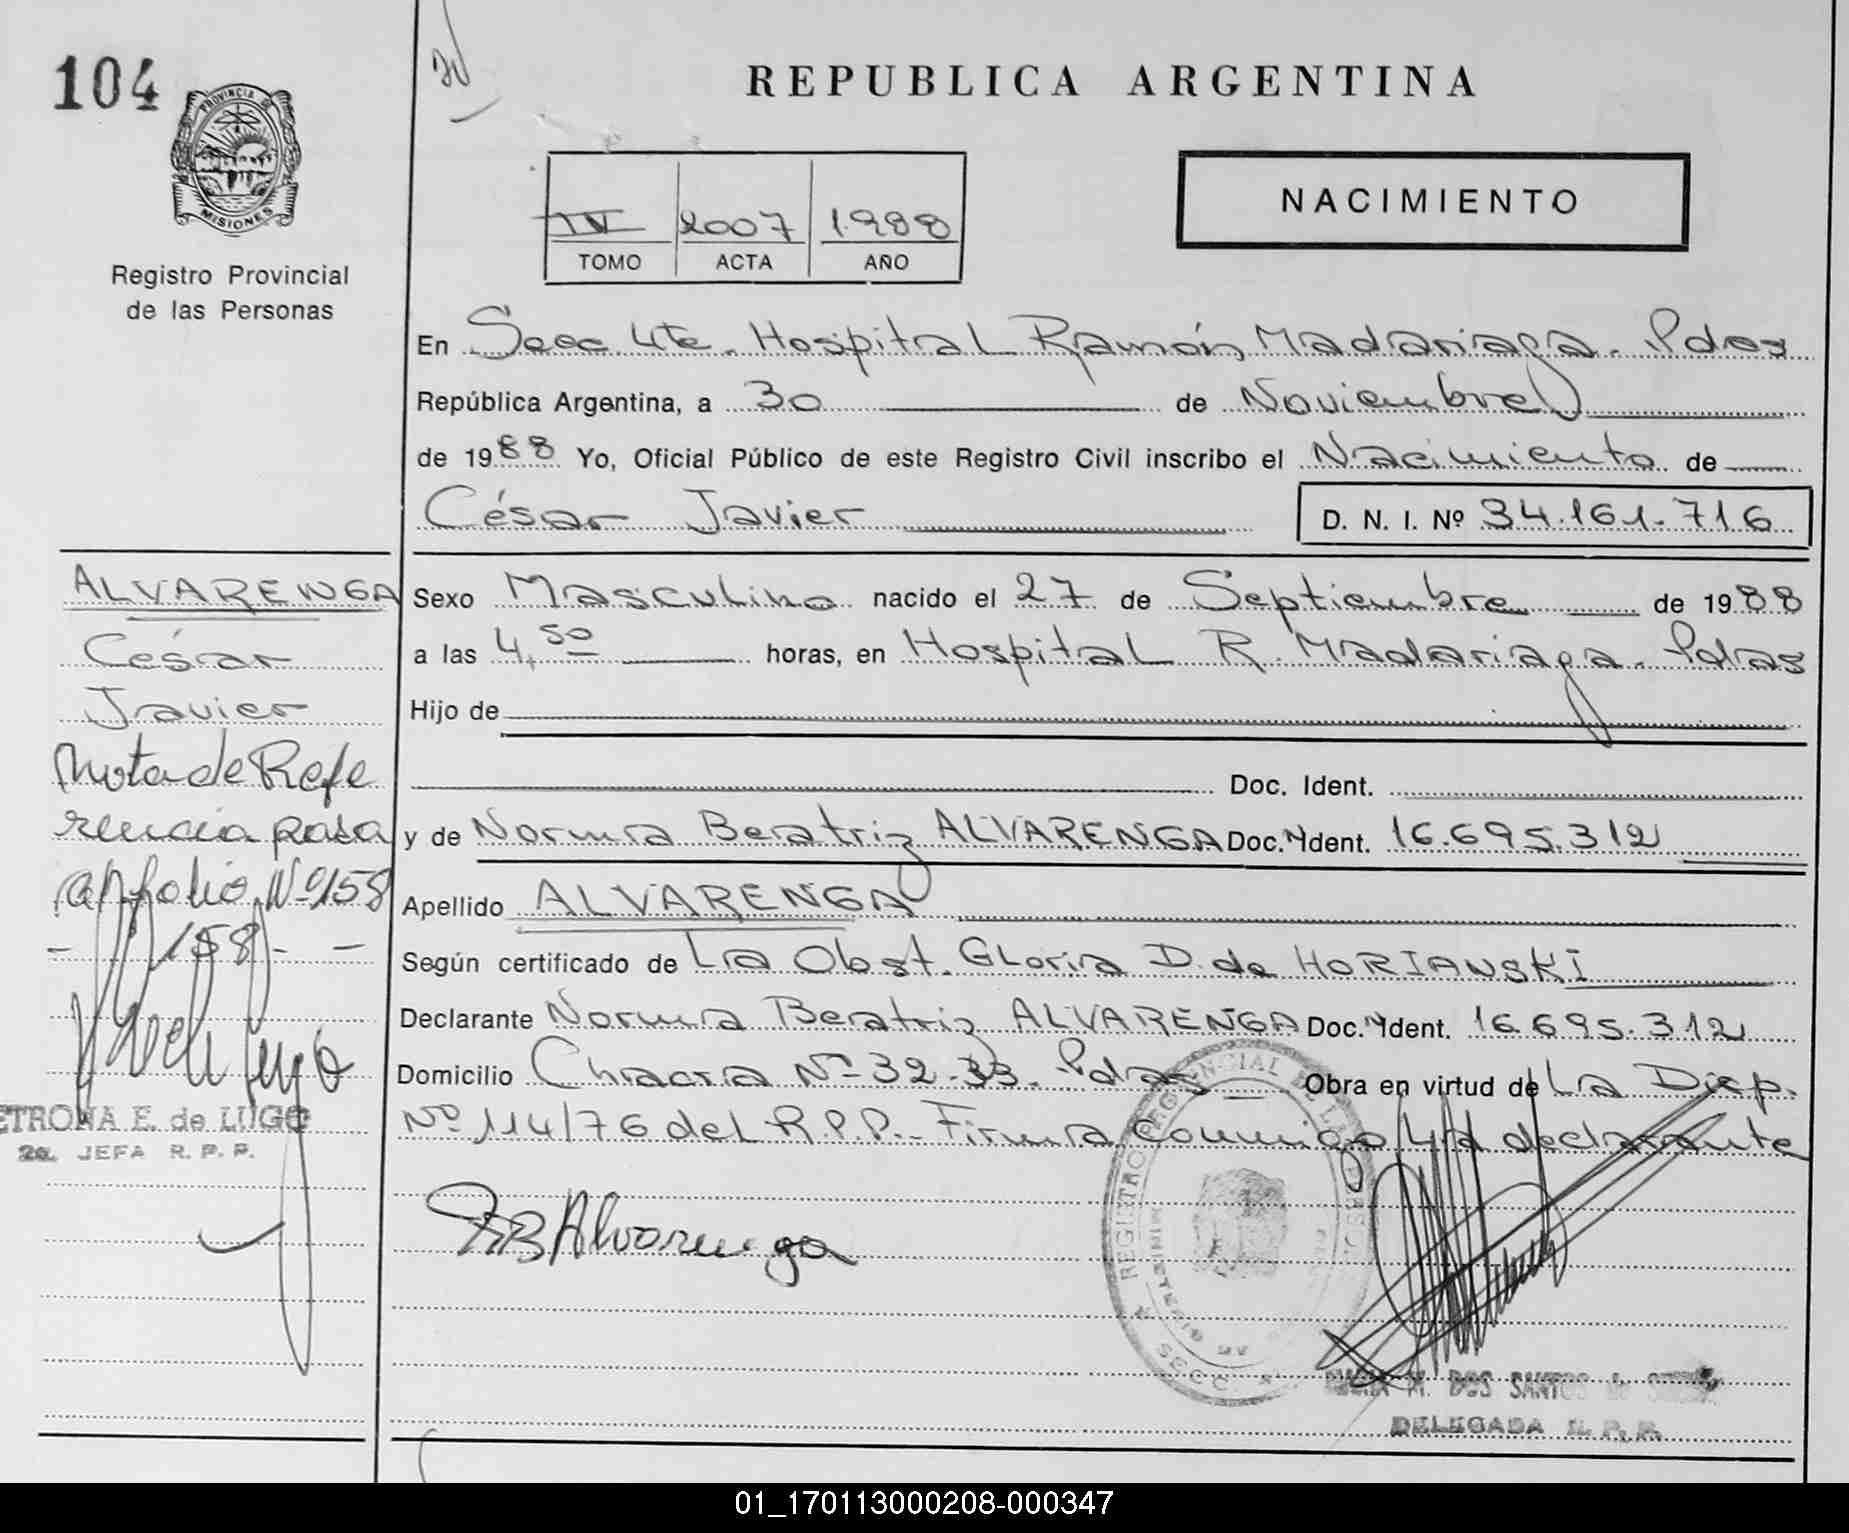 104
PROVINCIA DE
MISIONES
Registro Provincial
de las Personas
REPUBLICA ARGENTINA
NACIMIENTO
IV 2007 1988
TOMO ACTA AÑO
En Secc 4ta. Hospital Ramón Madariaga. Pdas
República Argentina, a 30 de Noviembre
de 1988 Yo, Oficial Público de este Registro Civil inscribo el Nacimiento de
César Javier D. N. I. Nº 34.161.716
ALVARENGA
César
Javier
Nota de Refe
rencia pasa
al folio Nº 158
- 158 - -
PETRONA E. de LUGO
2a. JEFA R. P. P.
Sexo Masculino nacido el 27 de Septiembre de 1988
a las 4,50 horas, en Hospital R. Madariaga. Pdas
Hijo de
Doc. Ident.
y de Norma Beatriz ALVARENGA Doc. Ident. 16.695.312
Apellido ALVARENGA
Según certificado de La Obst. Gloria D. de HORIANSKI
Declarante Norma Beatriz ALVARENGA Doc. Ident. 16.695.312
Domicilio Chacra Nº 32-33. Pdas Obra en virtud de La Disp.
Nº 114/76 del R.P.P.- Firma conmigo la declarante
NB Alvarenga
REGISTRO PROVINCIAL DE LAS PERSONAS
SECC. 4
M. DOS SANTOS de
DELEGADA R. P. P.
01_170113000208-000347